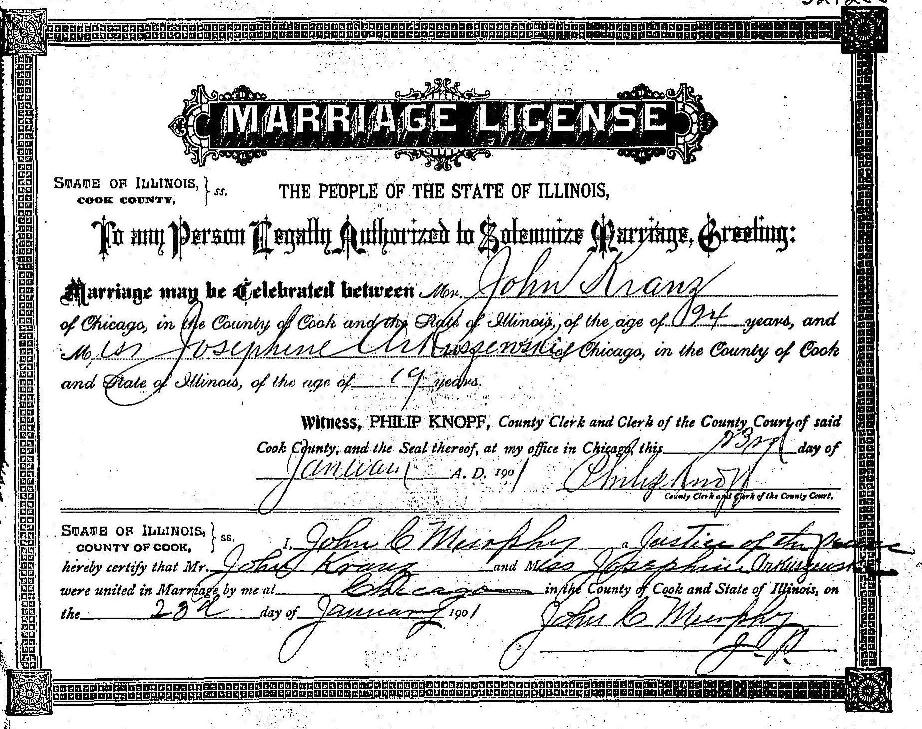 MARRIAGE LICENSE
STATE OF ILLINOIS, } ss. THE PEOPLE OF THE STATE OF ILLINOIS,
COOK COUNTY,
To any Person Legally Authorized to Solemnize Marriage, Greeting:
Marriage may be Celebrated between Mr. John Kranz
of Chicago, in the County of Cook and the State of Illinois, of the age of 24 years, and
Miss Josephine Arkuszewski of Chicago, in the County of Cook
and State of Illinois, of the age of 19 years.
Witness, PHILIP KNOPF, County Clerk and Clerk of the County Court of said
Cook County, and the Seal thereof, at my office in Chicago, this 23rd day of
January A. D. 1901 Philip Knopf
County Clerk and Clerk of the County Court.
STATE OF ILLINOIS, } ss. I, John C Murphy a Justice of the Peace
COUNTY OF COOK,
hereby certify that Mr. John Kranz and Miss Josephine Arkuszewski
were united in Marriage by me at Chicago in the County of Cook and State of Illinois, on
the 23d day of January 1901 John C Murphy
J. P.